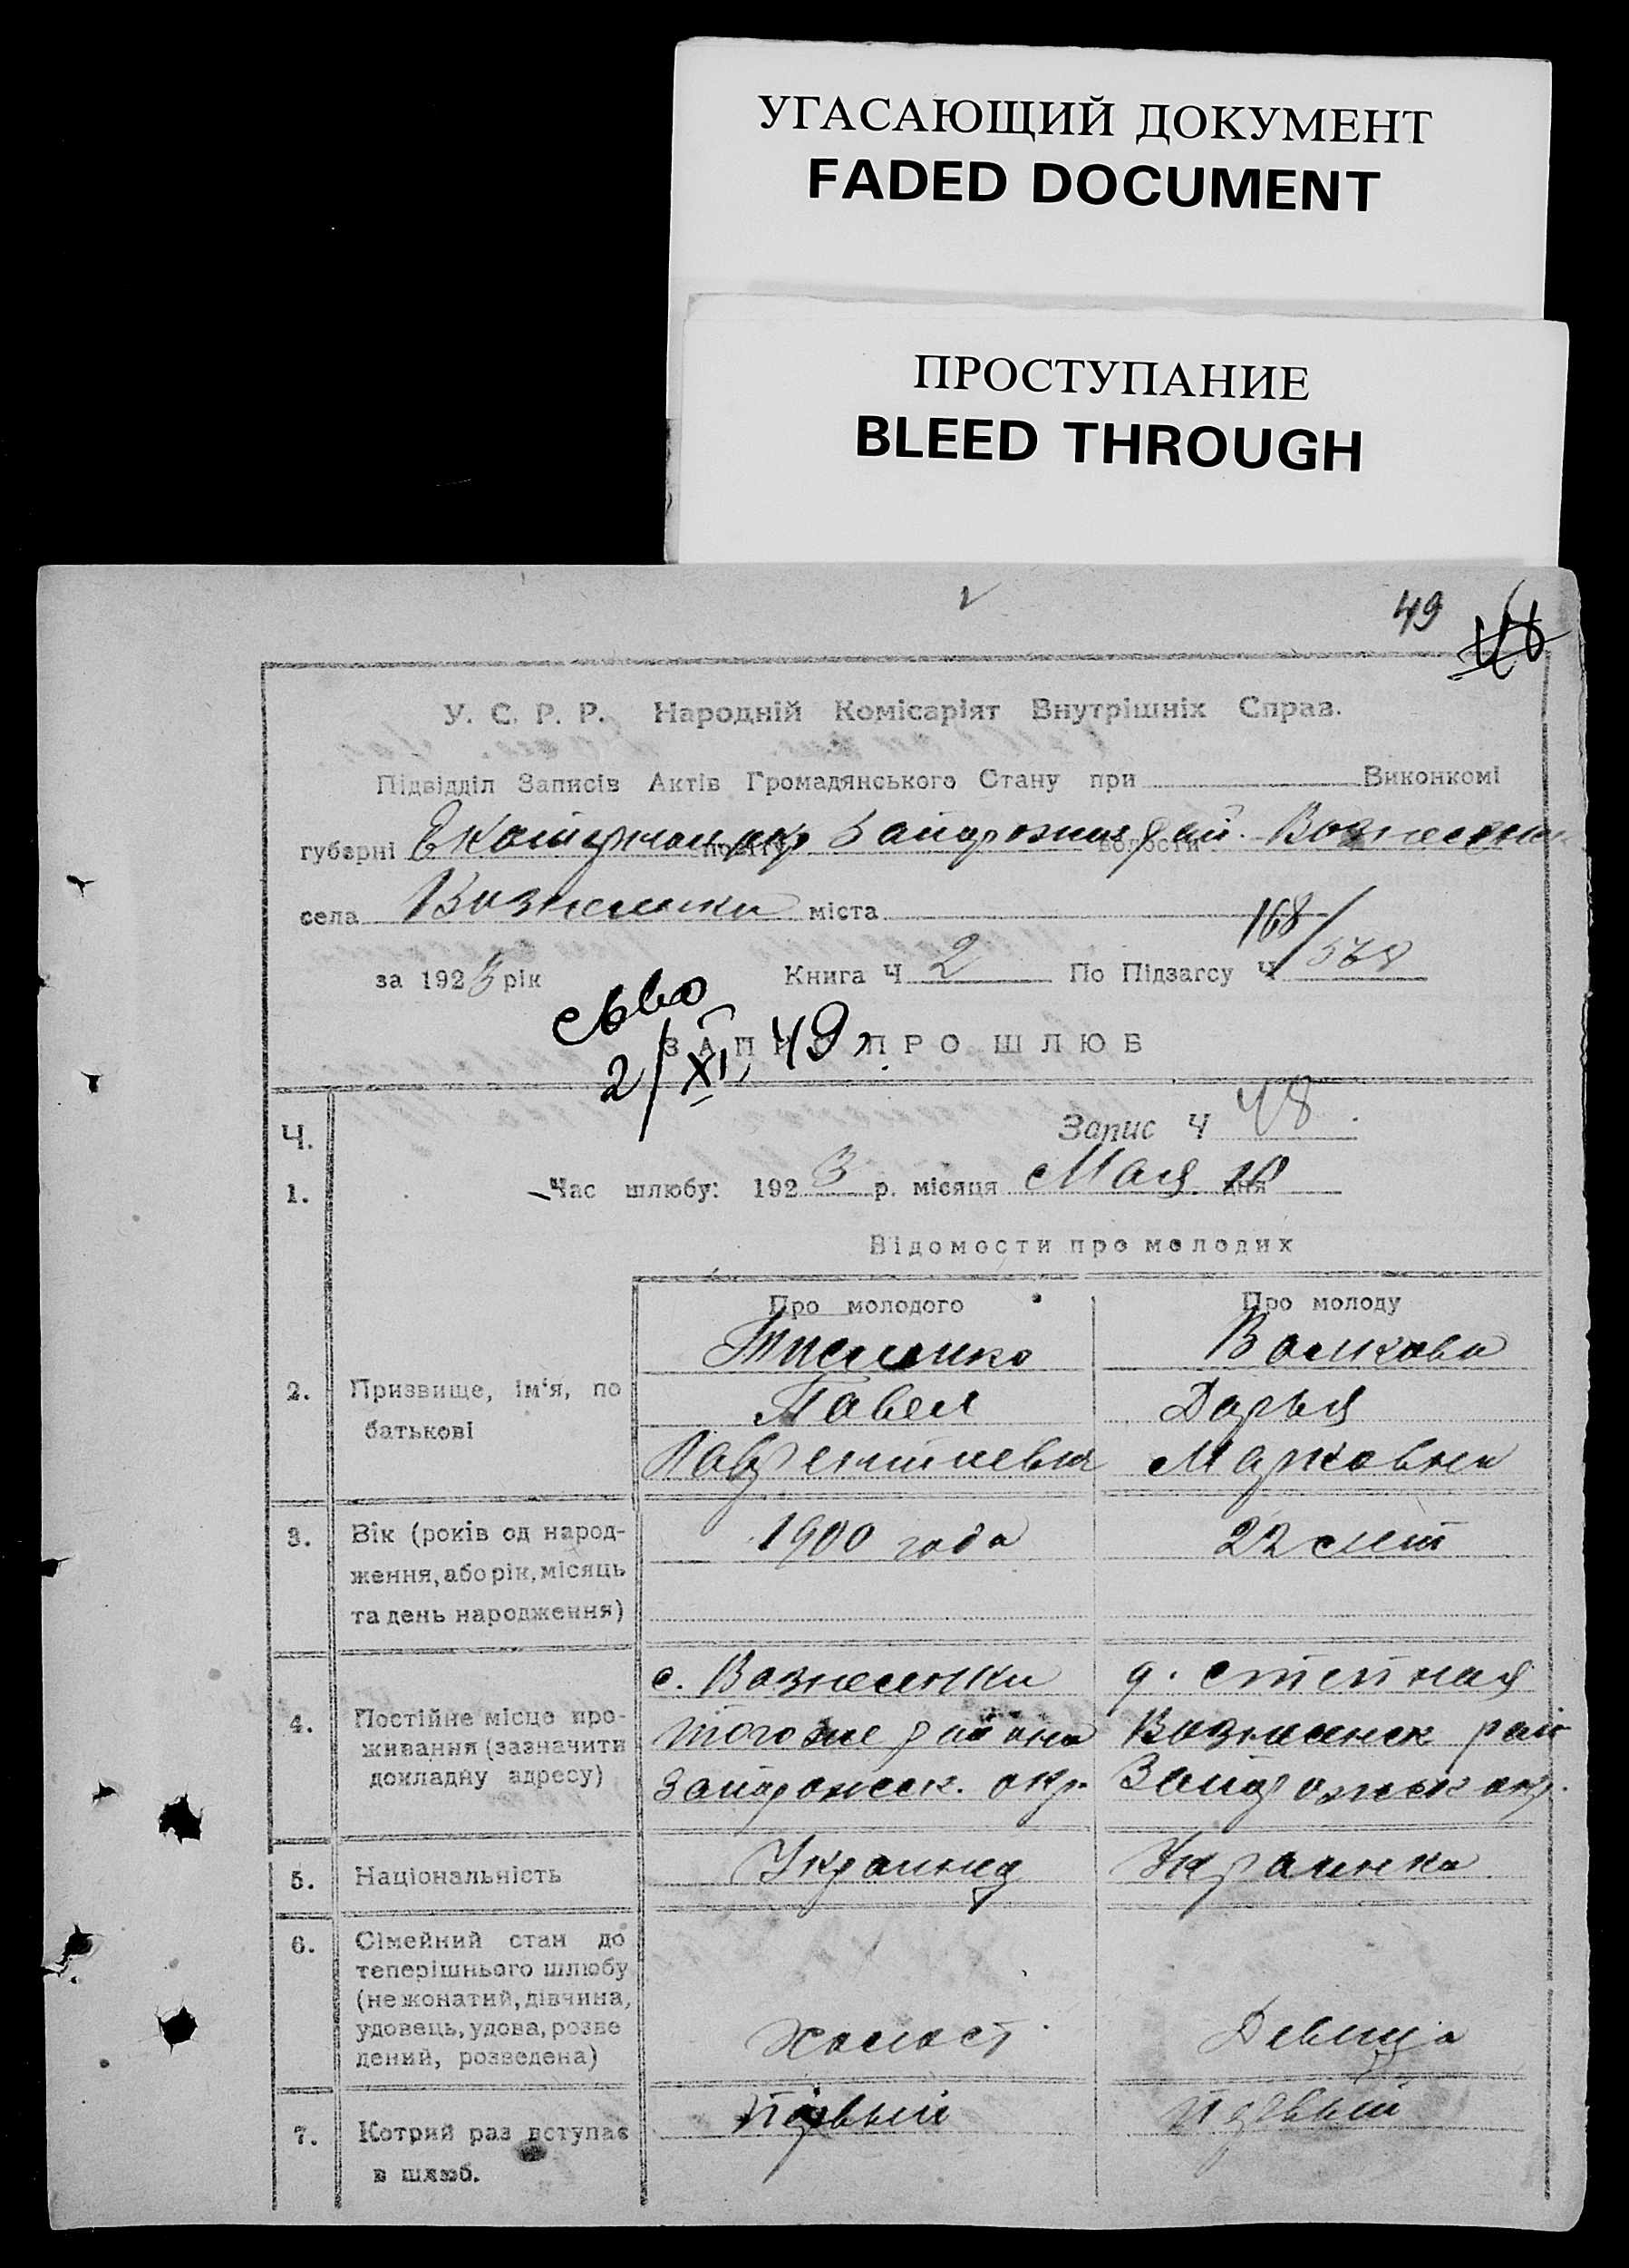 УГАСАЮЩИЙ ДОКУМЕНТ
FADED DOCUMENT
ПРОСТУПАНИЕ
BLEED THROUGH
49
У. С. Р. Р. Народній Комісаріят Внутрішніх Справ.
Підвідділ Записів Актів Громадянського Стану при Виконкомі
губерні Екатерин окр Запорожск рай. волости Вознесен
села Вознесенки міста
168/
за 1923 рік Книга Ч 2 По Підзагсу Ч 568
2/XI, 49 г.
ЗАПИС ПРО ШЛЮБ
Ч. Запис Ч 48
1. Час шлюбу: 1923 р. місяця Мая 10 дня
Відомости про молодих
Про молодого Про молоду
Тименко Волкова
2. Призвище, ім'я, по Павел Дарья
батькові Лаврентиевич Марковна
3. Вік (років од народ- 1900 года 22 лет
ження, або рік, місяць
та день народження)
с. Вознесенки д. Степная
4. Постійне місце про- того же района Вознесенск рай
живання (зазначити
докладну адресу) Запорожск. окр. Запорожск окр.
5. Національність Украинец Украинка
6. Сімейний стан до
теперішнього шлюбу
(не жонатий, дівчина,
удовець, удова, розве
дений, розведена) Холост Девица
7. Котрий раз вступає Первый Первый
в шлюб.